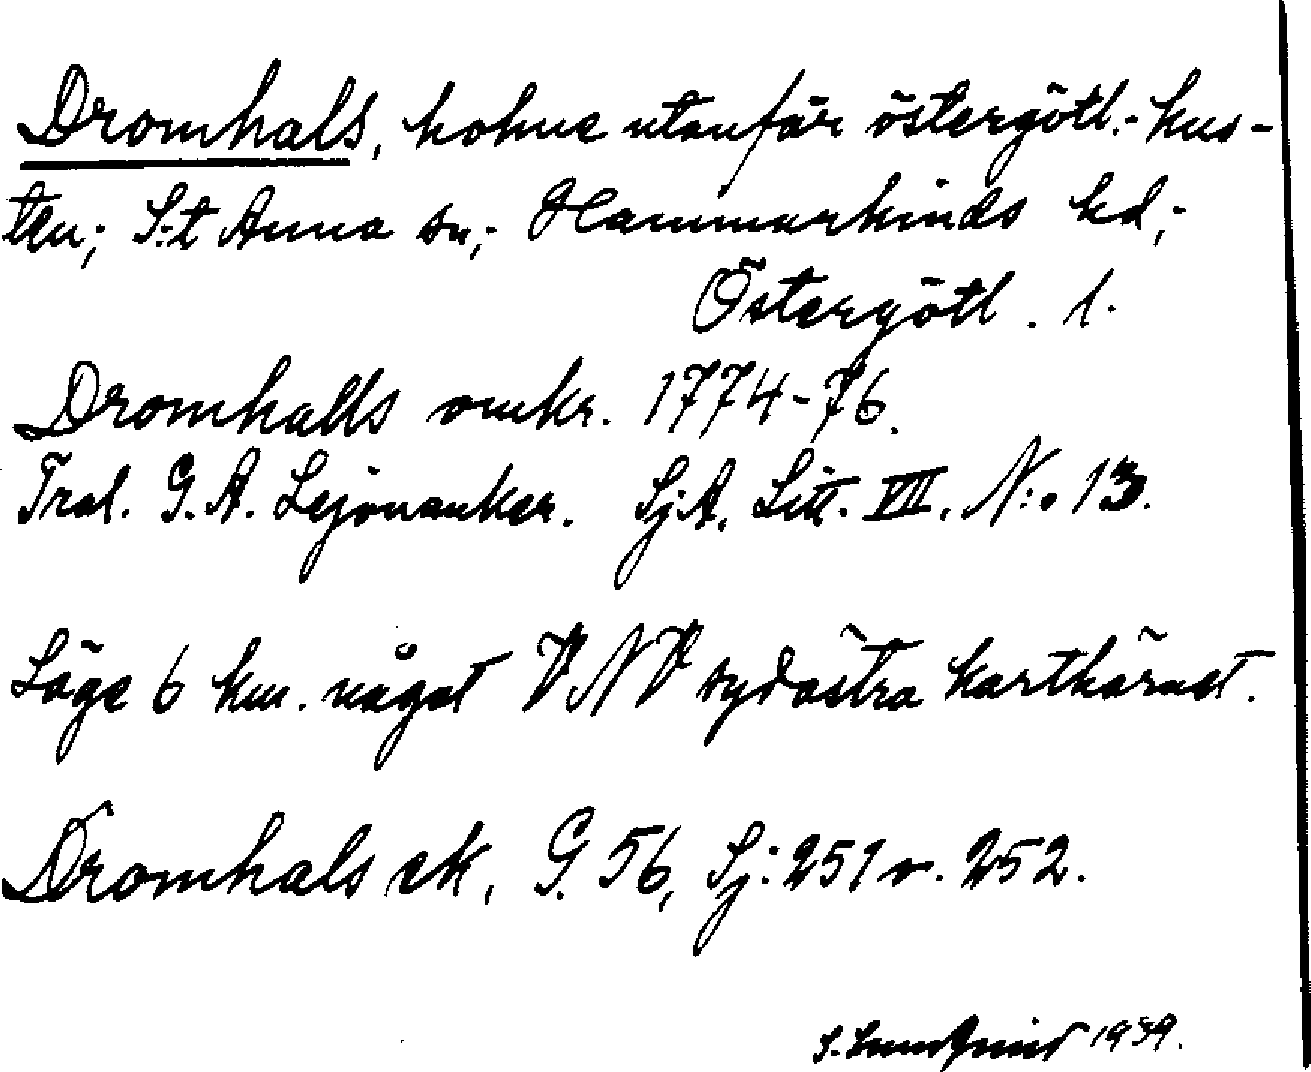 Dromhals, holme utanför östergötl.-kus-
ten; S:t Anna sn; Hammarkinds hd;
Östergötl. l.
Dromhalls omkr. 1774-76.
Tral. G. A. Lejonanker. Sj.A. Litt. VII. N:o 13.
Läge 6 km. något VNV sydöstra karthörnet.
Dromhals ek, G. 56, Sj: 251 o. 252.
S. 1939.